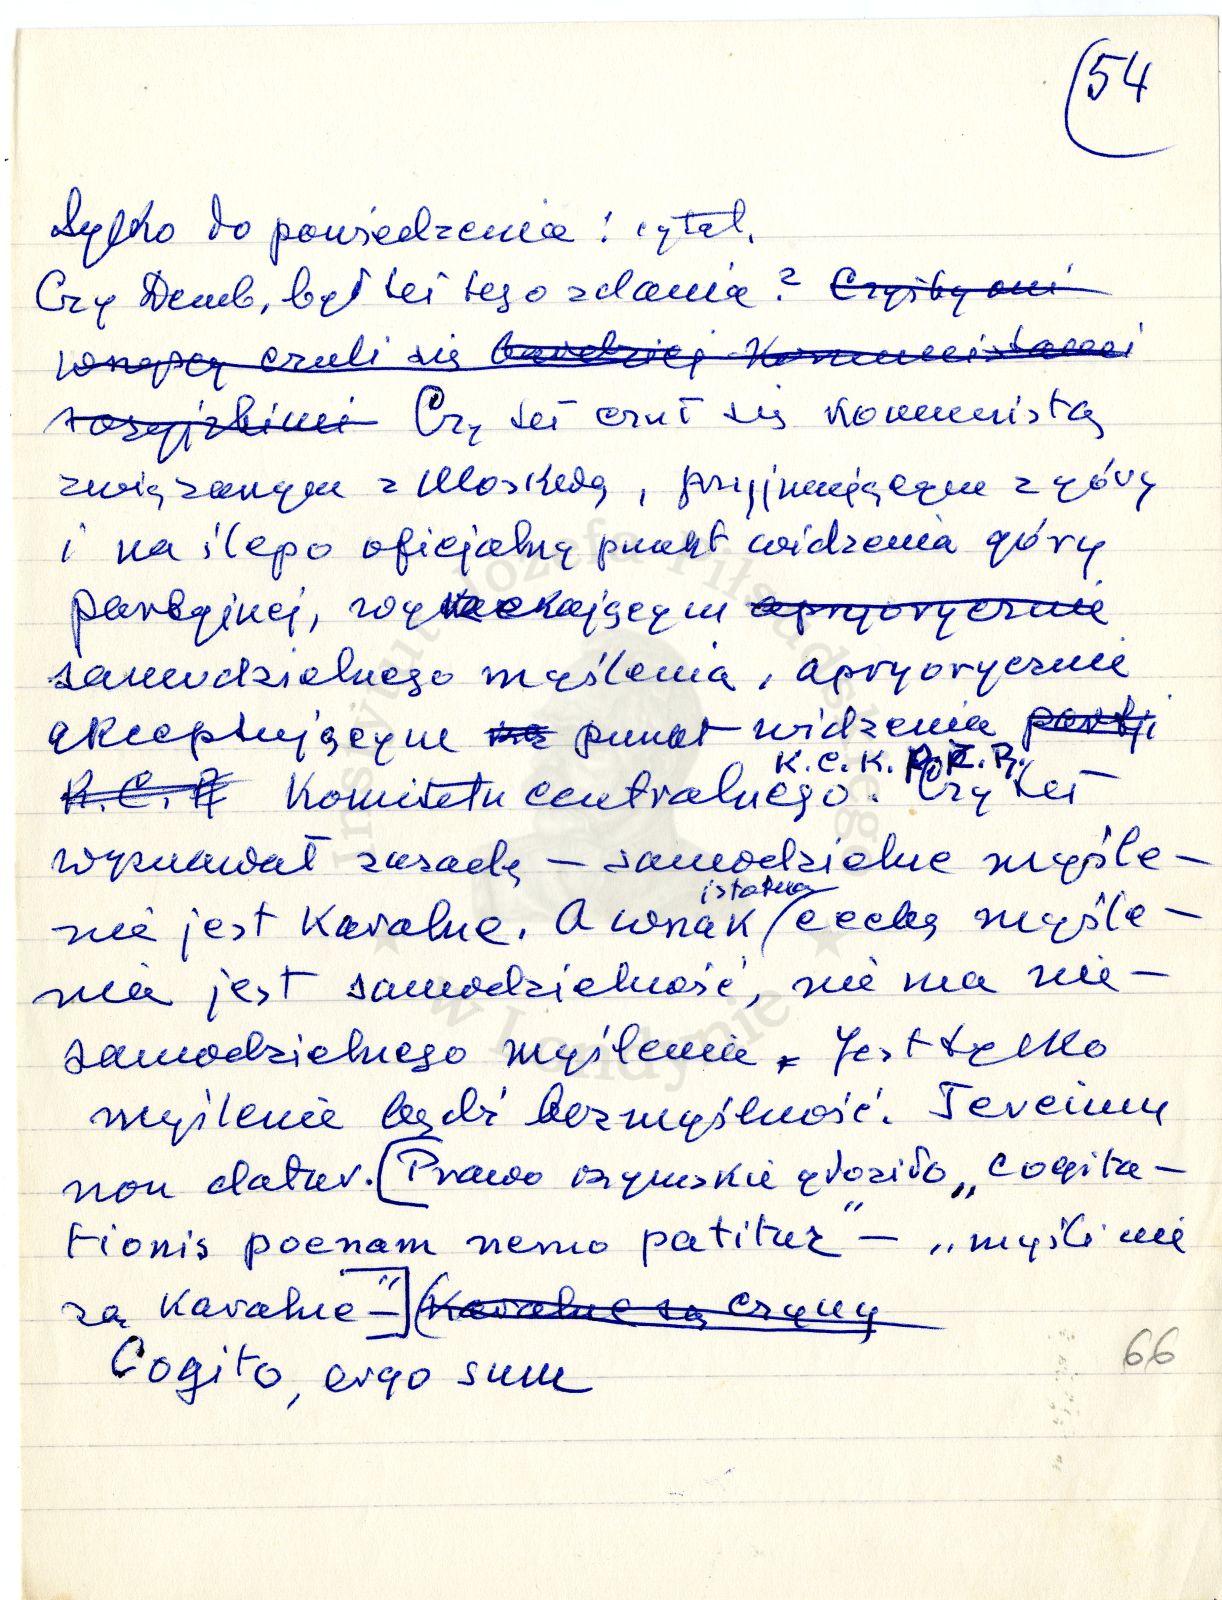 54
Tylko do powiedzenia : cytat.
Czy Demb, był też tego zdania? Czyżby oni
wszyscy czuli się bardziej komunistami
rosyjskimi Czy też czuł się komunistą
związanym z Moskwą, przyjmującym z góry
i na ślepo oficjalny punkt widzenia góry
partyjnej, wyrzekającym apryorycznie
samodzielnego myślenia, apryorycznie
akceptującym punkt widzenia partji
K.C.K.P.Z.R.
K.C.P. Komitetu centralnego. Czy też
wyznawał zasadę – samodzielne myśle–
nie jest karalne. A wszak cechą myśle–
istotną
nia jest samodzielność, nie ma nie–
samodzielnego myślenia. Jest tylko
myślenie bądź bezmyślność. Tercium
non datur. [Prawo rzymskie głosiło „cogita–
tionis poenam nemo patitur" – „myśli nie
są karalne –"] (Karalne są czyny
Cogito, ergo sum
66
Instytut Józefa Piłsudskiego
w Londynie